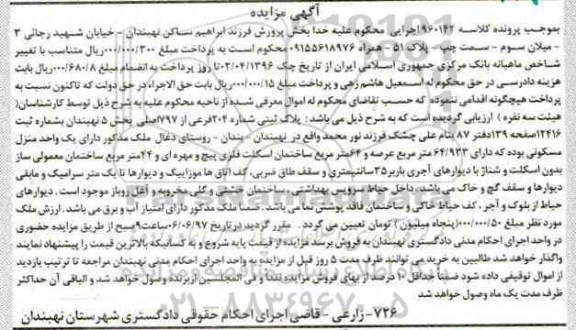 آگهی مزایده
بموجب پرونده کلاسه ۹۶۰۱۴۲اجرایی محکوم علیه خدا بخش پرورش فرزند ابراهیم ساکن نهبندان - خیابان شهید رجائی ۳
- میلان سوم - سمت چپ- پلاک ۵۱ - همراه ۰۹۱۵۵۶۱۸۹۷۶ محکوم است به پرداخت مبلغ ۳۰۰/۰۰۰/۰۰۰ریال متناسب با تغییر
شاخص ماهیانه بانک مرکزی جمهوری اسلامی ایران از تاریخ چک ۰۲/۰۴/۱۳۹۶تا روز پرداخت به انضمام مبلغ ۸/۶۸۰/۰۰۰ریال بابت
هزینه دادرسی در حق محکوم له اسمعیل هاشم زهی و پرداخت مبلغ ۱۵/۰۰۰/۰۰۰ریال بابت حق الاجراء در حق دولت که تاکنون نسبت به
پرداخت هیچگونه اقدامی ننموده که حسب تقاضای محکوم له اموال معرفی شده از ناحیه محکوم علیه به شرح ذیل توسط کارشناسان(
هیئت سه نفره ) ارزیابی گردیده است که به شرح ذیل می باشد: پلاک ثبتی شماره ۲۰۴فرعی از ۷۹۷اصلی بخش ۵ نهبندان بشماره ثبت
۱۲۴۱۶صفحه ۱۳۹دفتر ۸۷ بنام علی چشک فرزند نور محمد واقع در نهبندان - بندان - روستای دغال ملک مذکور دارای یک واحد منزل
مسکونی بوده که دارای ۶۴/۹۳۳ متر مربع عرصه و ۶۴متر مربع ساختمان اسکلت فلزی پیچ و مهره ای و ۴۴متر مربع ساختمان معمولی ساز
بدون اسکلت و شناژ با دیوارهای آجری باربر۳۵سانتیمتری و سقف طاق ضربی، کف اتاق ها موزاییک و دیوارها تا یک متر سرامیک و مابقی
دیوارها و سقف گچ و خاک می باشد، داخل حیاط سرویس بهداشتی ، ساختمان خشتی و گلی مخروبه و آغل روباز موجود است . دیوارهای
حیاط از بلوک و آجر ، کف حیاط خاکی و ساختمان فاقد پوشش نما می باشد. ضمنا ملک مذکور دارای امتیاز آب و برق می باشد. ارزش ملک
مورد نظر مبلغ ۵۰/۰۰۰/۰۰۰(پنجاه میلیون ) تومان تعیین می گردد . مقرر گردید در تاریخ ۰۶/۰۶/۹۷ساعت۹صبح از طریق مزایده حضوری
در واحد اجرای احکام مدنی دادگستری نهبندان به فروش برسد مزایده از قیمت پایه شروع و به کسانیکه بالاترین قیمت را پیشنهاد نمایند
واگذار خواهد شد طالبین به خرید می توانند ظرف مدت ۵ روز قبل از مزایده به واحد اجرای احکام مدنی نهبندان مراجعه تا ترتیب بازدید
از اموال توقیفی داده شود ضمناً حداقل ۱۰ درصد از بهای فروش مزایده نقدا و فی المجلس از برنده وصول خواهد شد و الباقی آن حداکثر
ظرف مدت یک ماه وصول خواهد شد
۷۲۶- زارعی - قاضی اجرای احکام حقوقی دادگستری شهرستان نهبندان
۰۲۱-۸۸۳۴۹۶۷۰-۵